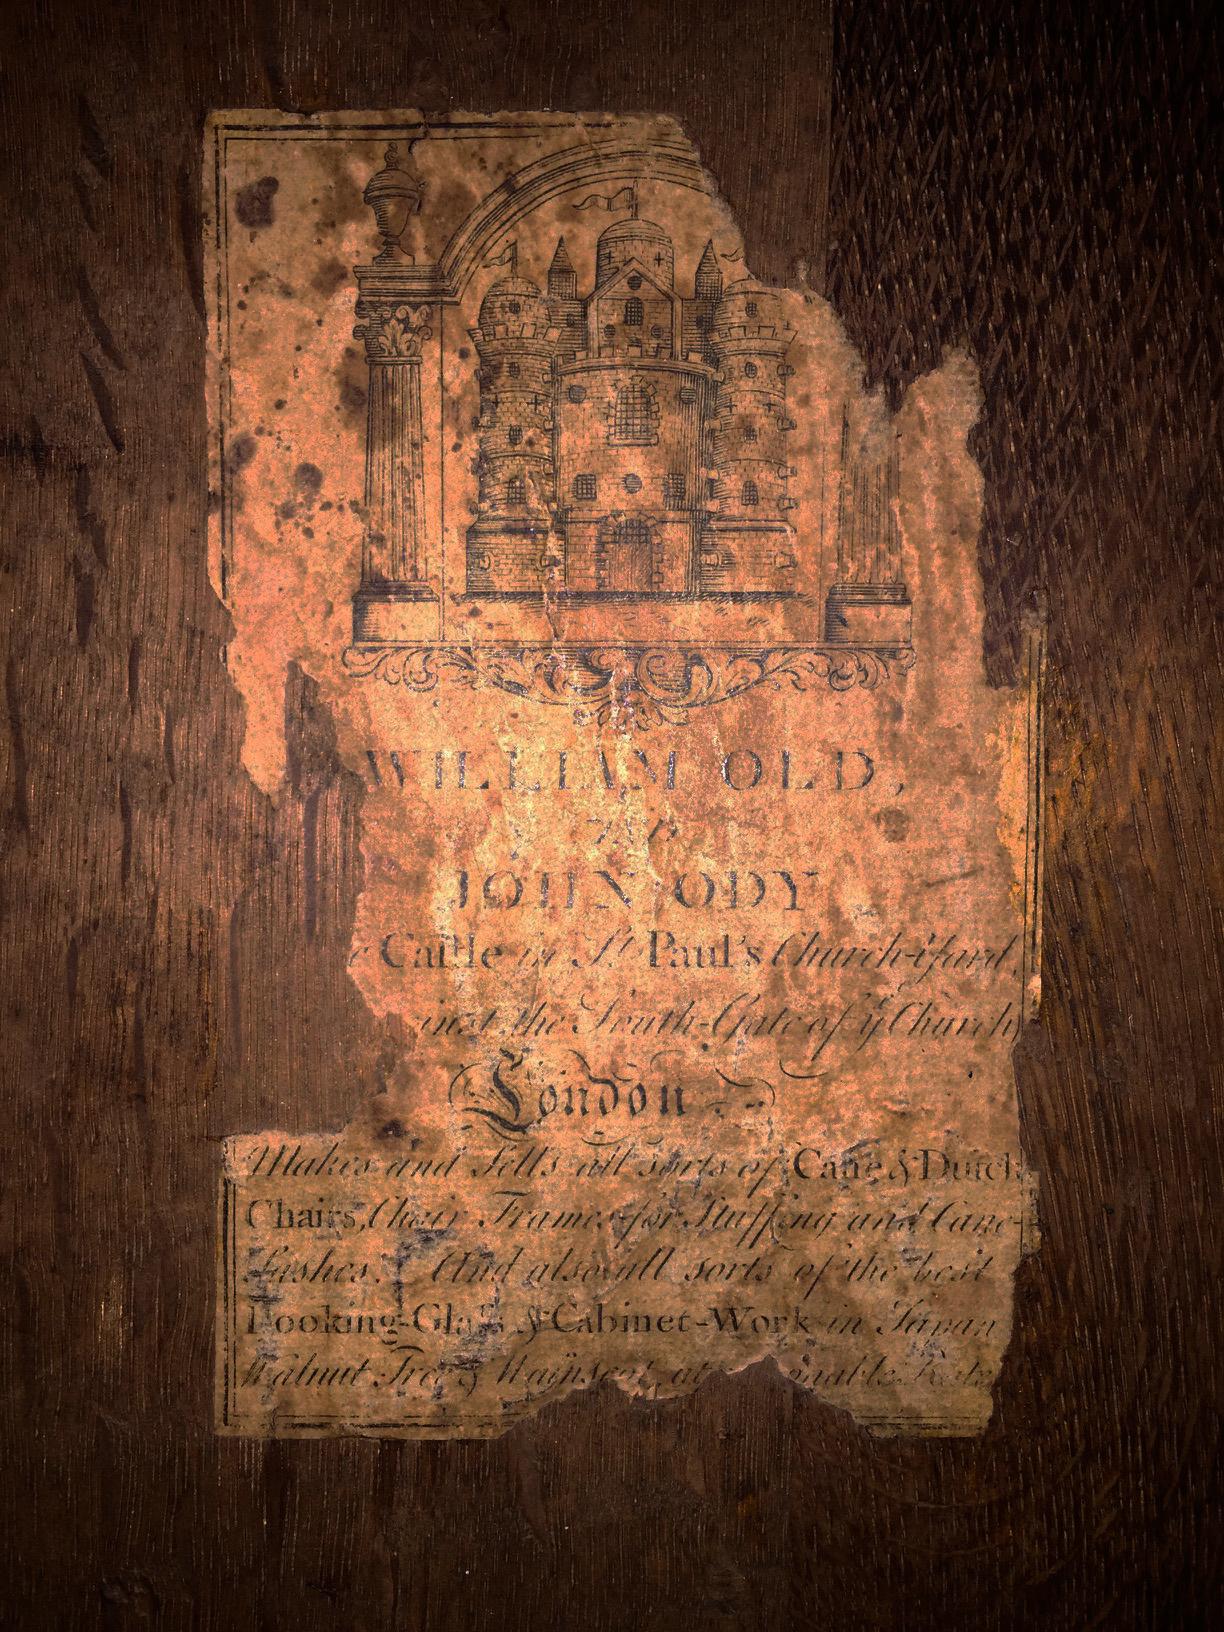 WILLIAM OLD,
JOHN ODY
Caſtle in St. Paul's Church-Yard,
inst the South-Gate of ye Church
London
Makes and Sells all sorts of Cane & Dutch
Chairs, Chair Frames for Stuffing and Cane-
Sashes. And also all sorts of the best
Looking-Glaſs & Cabinet-Work in Japan
Walnut-Tree & Wainscot, at onable Rates